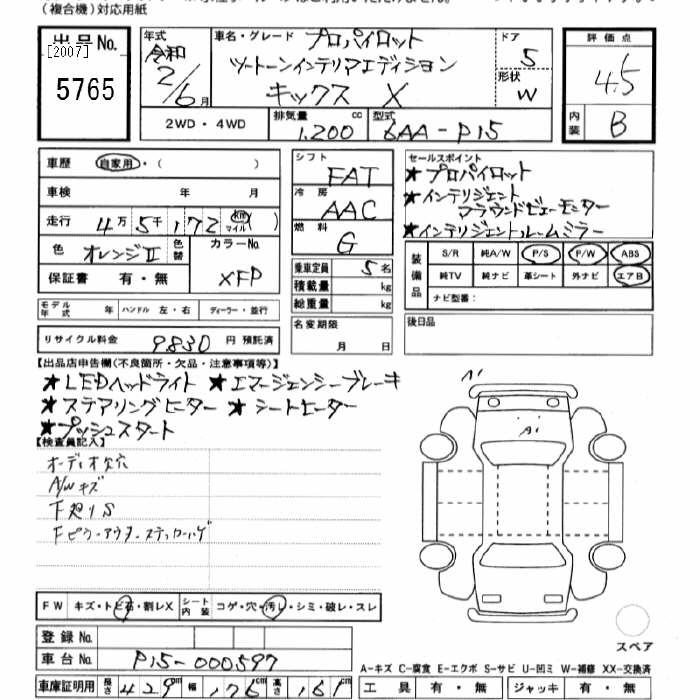 (複合機)対応用紙
出品No.
[2007]
5765
年式
令和
2/6月
車名・グレード プロパイロット
ツートーンインテリアエディション
キックス X
ドア
5
形状
W
評価点
4.5
内装 B
2WD・4WD
排気量 1,200 cc
型式 6AA-P15
車歴 自家用・( )
車検 年 月
走行 4万5千172 km マイル ( )
色 オレンジII 色替
カラーNo. XFP
保証書 有・無
シフト
FAT
冷房
AAC
燃料
G
乗車定員 5名
積載量 kg
総重量 kg
セールスポイント
★プロパイロット
★インテリジェント
アラウンドビューモニター
★インテリジェントルームミラー
装備品 S/R 純A/W P/S P/W ABS
純TV 純ナビ 革シート 外ナビ エアB
ナビ型番:
モデル年式 年 ハンドル 左・右 ディーラー・並行
リサイクル料金 9830 円 預託済
名変期限
月 日
後日品
【出品店申告欄(不良箇所・欠品・注意事項等)】
★LEDヘッドライト ★エマージェンシーブレーキ
★ステアリングヒーター ★シートヒーター
★プッシュスタート
【検査員記入】
オーディオ欠穴
A/Wキズ
下廻りS
Fピラーアウターステッカーハゲ
A1
A1
FW キズ・トビ石・割レX シート内装 コゲ・穴・汚レ・シミ・破レ・スレ
登録No.
車台No. P15-000597
車庫証明用 長さ 429cm 幅 176cm 高さ 161cm
スペア
A-キズ C-腐食 E-エクボ S-サビ U-凹ミ W-補修 XX-交換済
工具 有・無 ジャッキ 有・無